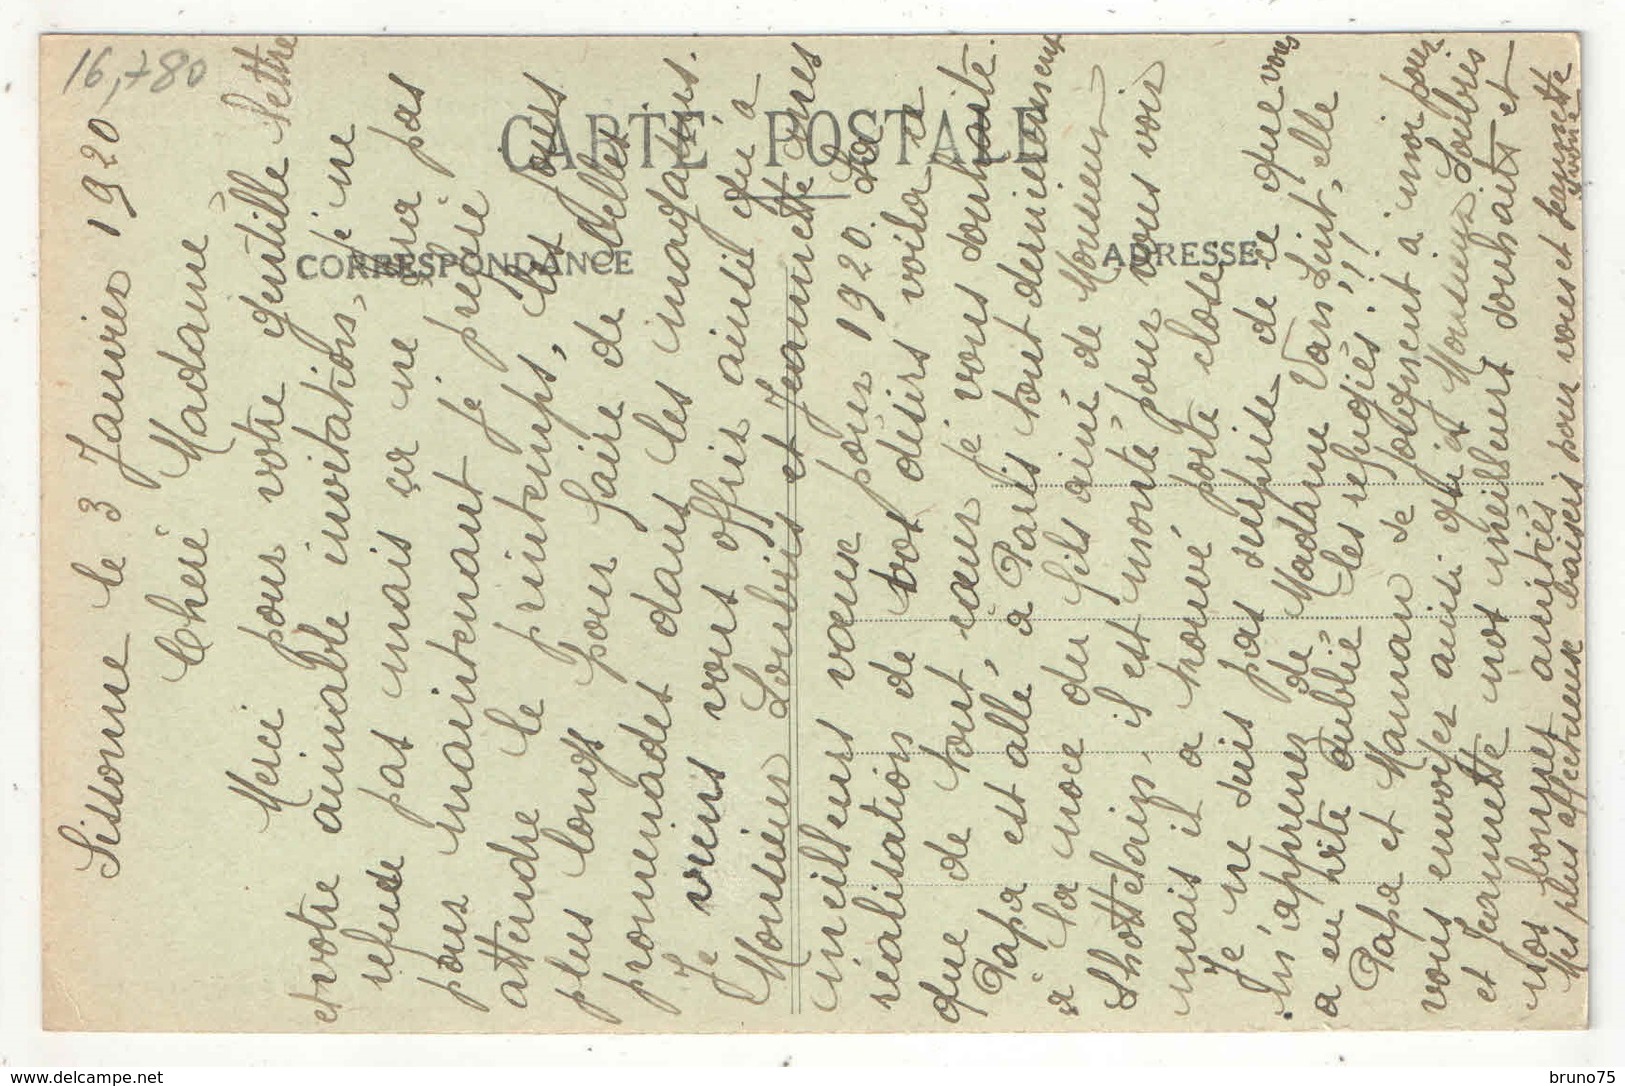 16,780
CARTE POSTALE
CORRESPONDANCE
ADRESSE
Sissonne le 3 Janvier 1920
Cheré Madame
Merci pour votre gentille lettre
et votre aimable invitation, je ne
refuse pas mais ça ne sera pas
pour maintenant je préfère
attendre le printemps, les jours
plus longs pour faire de belles
promenades dans les magasins.
Je viens vous offrir ainsi qu'a
Monsieur Loubris et Jeannette mes
meilleurs vœux pour 1920. La
réalisation de vos désirs voila ce
que de tout cœur je vous souhaite.
Papa est allé, à Paris tout dernièrement
à la noce du fils ainé de Monsieur
Lhottelain, il est monté pour vous voir
mais il a trouvé porte close.
Je ne suis pas surprise de ce que vous
m'apprenez de Madame Vansuit, elle
a eu vite oublié les refugiés!!!
Papa et Maman se joignent à moi pour
vous envoyer ainsi qu'à Monsieur Loubris
et Jeannette nos meilleurs souhaits et
nos bonnes amitiés
Mes plus affectueux baisers pour vous et Jeannette
Yvonne
www.delcampe.net
bruno75